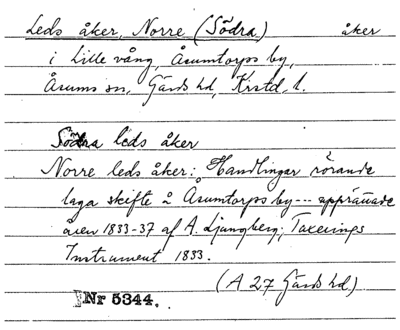 Leds åker, Norre (Södra) åker
i Lille vång, Årumtorps by,
Årums sn, Gärds hd, Krstd. l.
Södra leds åker
Norre leds åker: Handlingar rörande
laga skifte å Årumtorps by --- upprättade
åren 1833-37 af A. Ljungberg; Taxerings
Instrument 1833.
(A 27 Gärds hd)
Nr 5344.